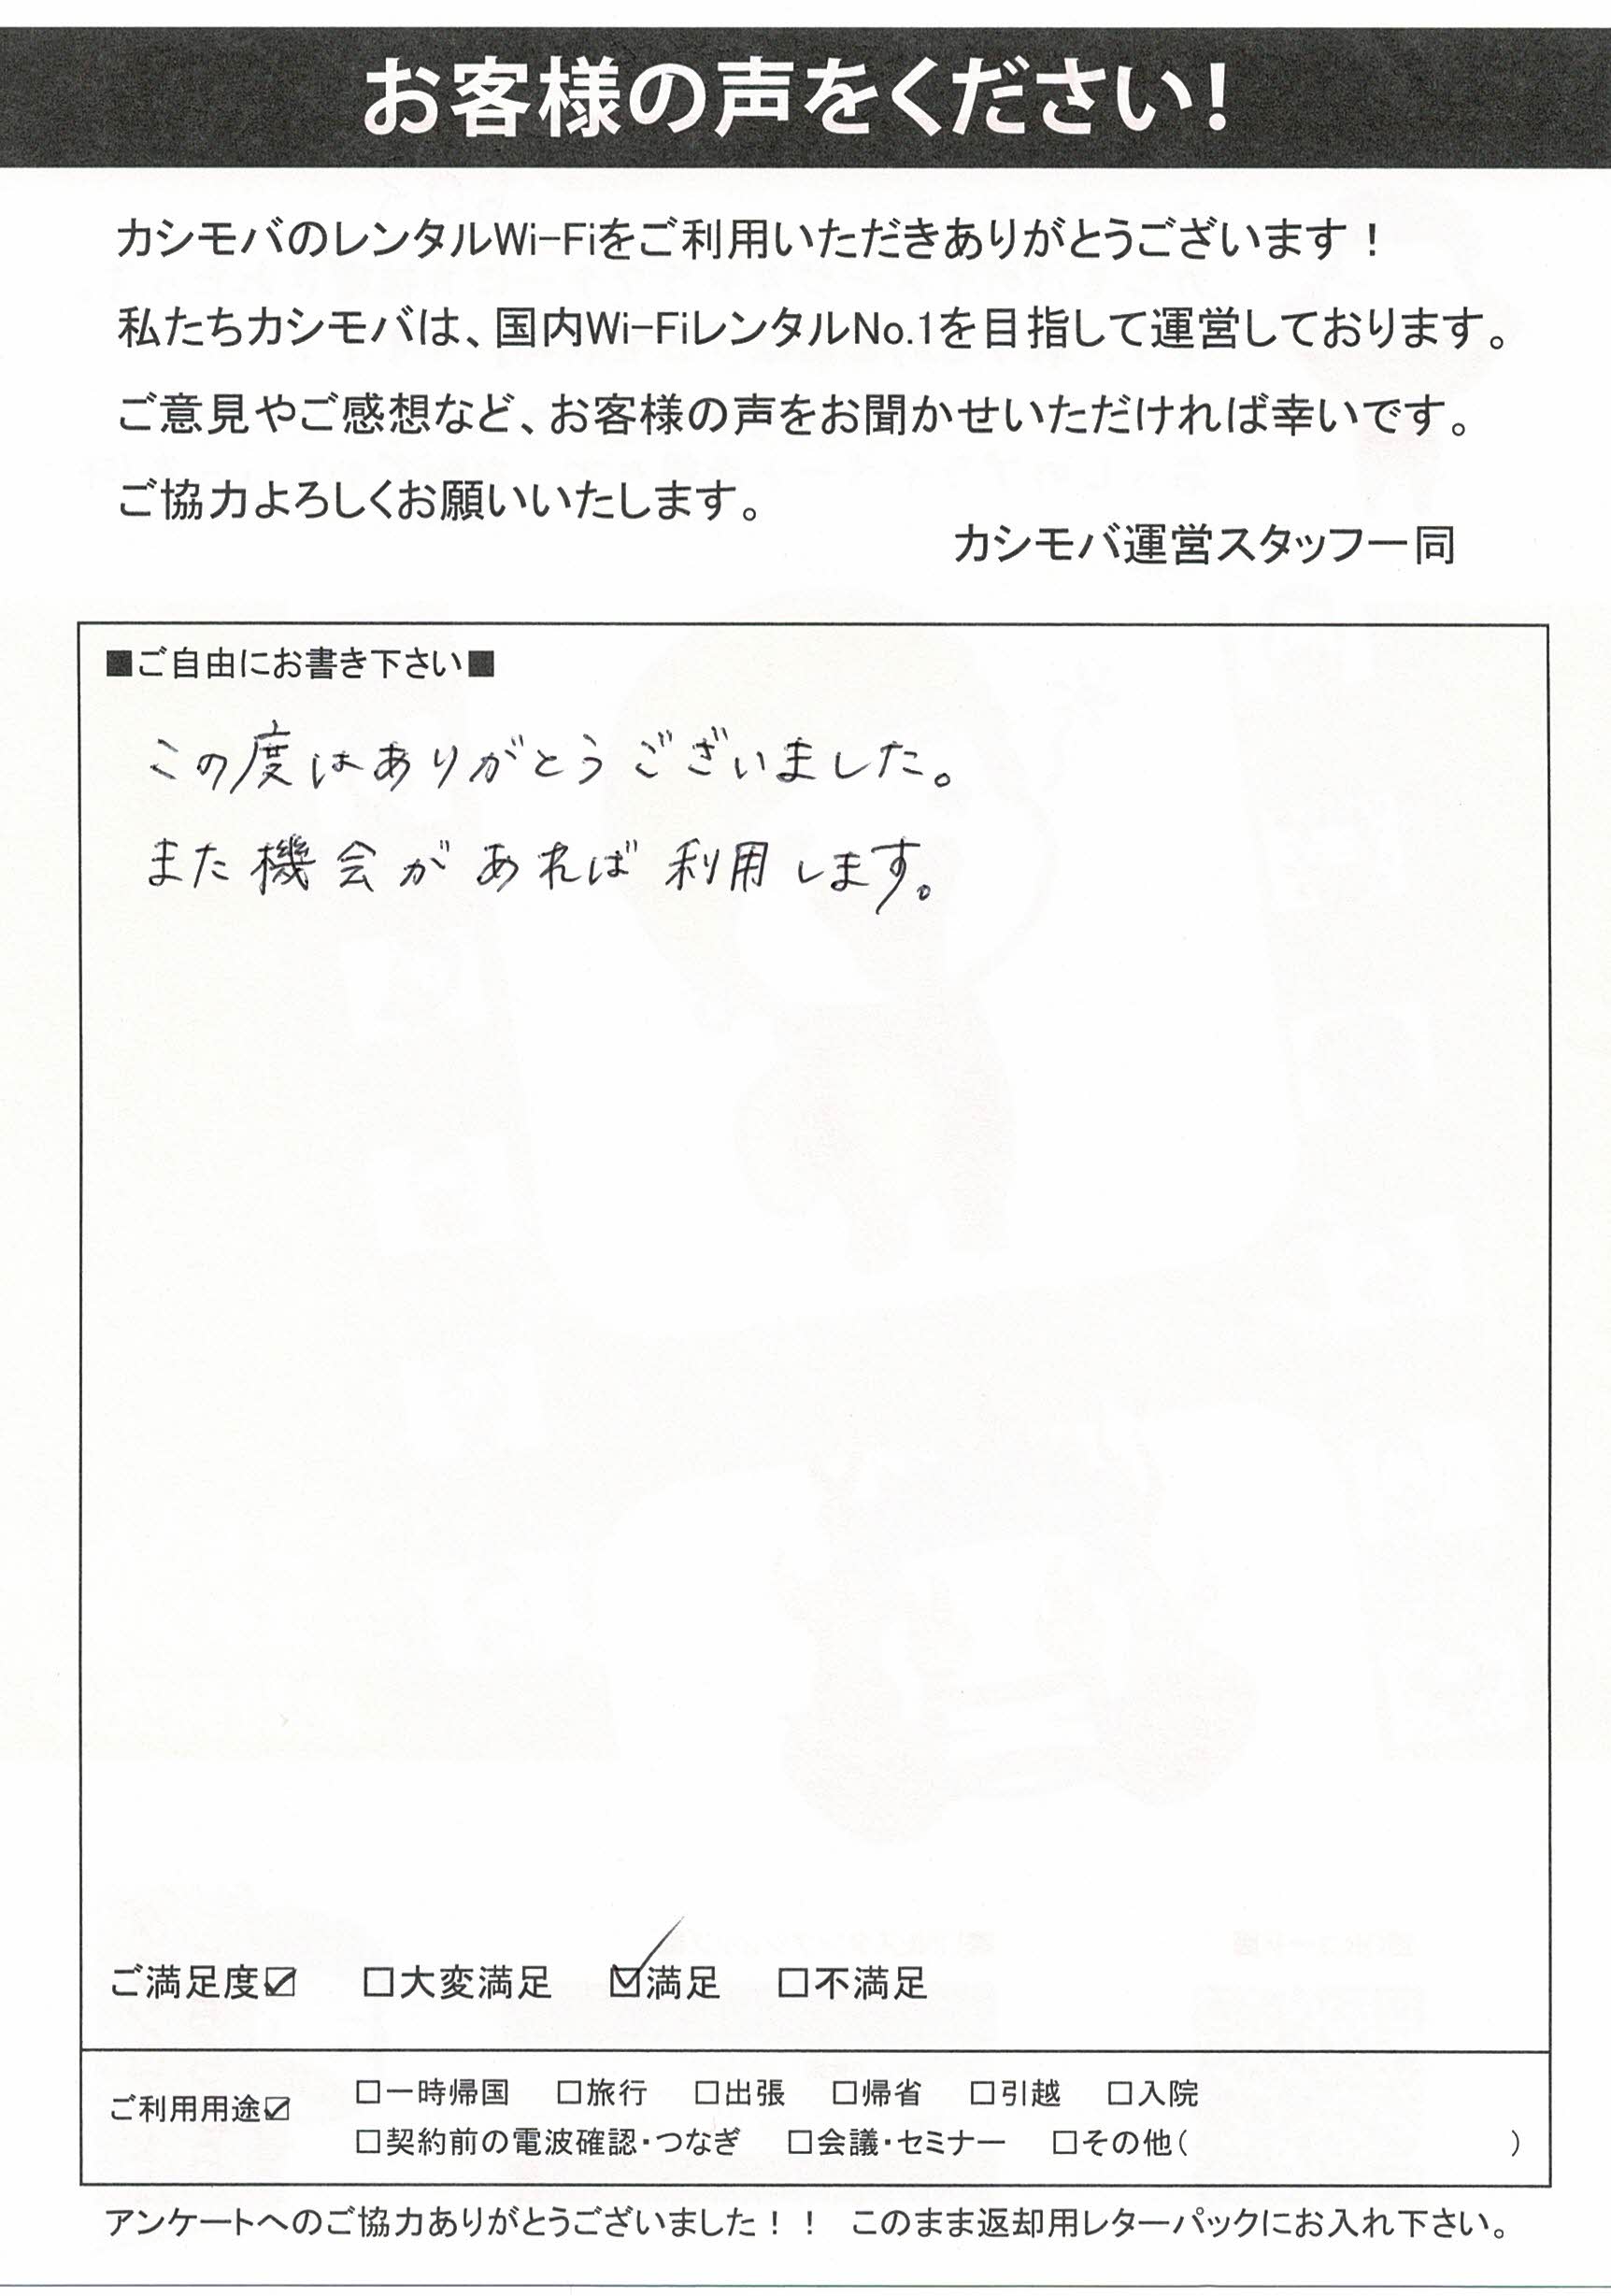 お客様の声をください!
カシモバのレンタルWi-Fiをご利用いただきありがとうございます！
私たちカシモバは、国内Wi-FiレンタルNo.1を目指して運営しております。
ご意見やご感想など、お客様の声をお聞かせいただければ幸いです。
ご協力よろしくお願いいたします。
カシモバ運営スタッフ一同
■ご自由にお書き下さい■
この度はありがとうございました。
また機会があれば利用します。
ご満足度☑ □大変満足 ☑満足 □不満足
ご利用用途☑ □一時帰国 □旅行 □出張 □帰省 □引越 □入院
□契約前の電波確認・つなぎ □会議・セミナー □その他( )
アンケートへのご協力ありがとうございました！！ このまま返却用レターパックにお入れ下さい。